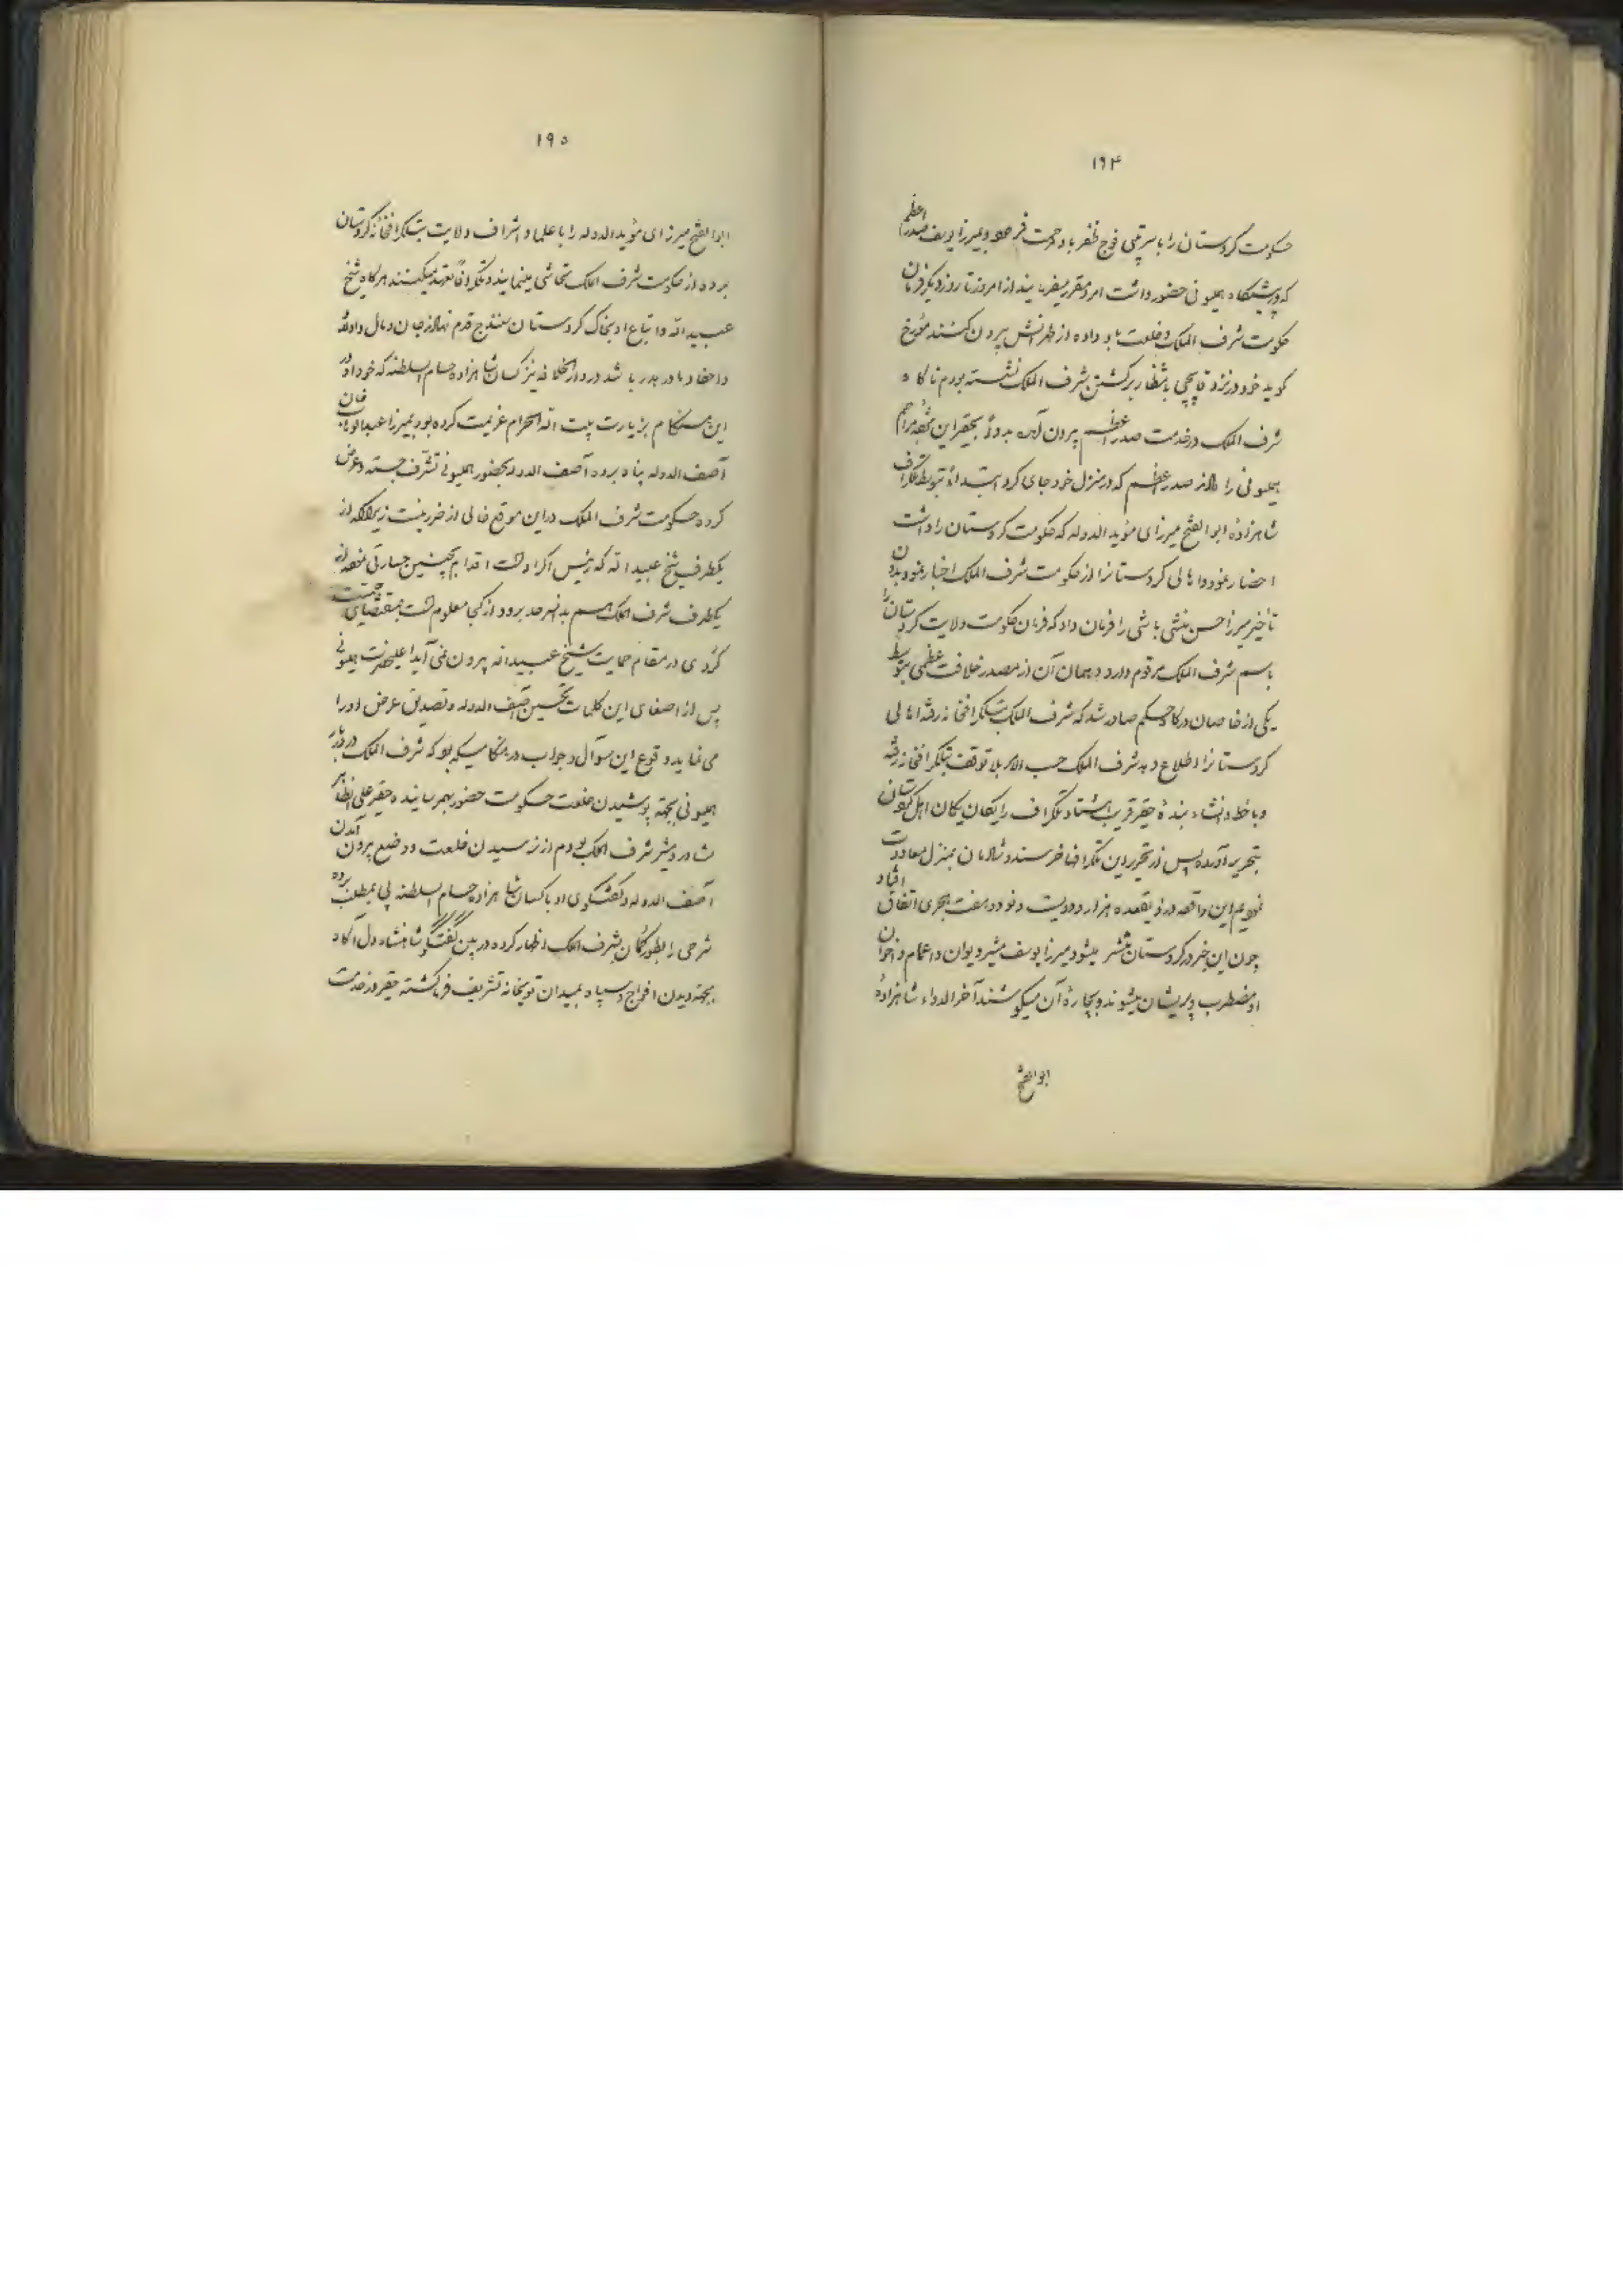 ۱۹۴
حکومت کردستان را با سرتیپی فوج ظفر باو مرحمت فرمود و بمیرزا یوسف صدر اعظم
که در پیشگاه همیونی حضور داشت امر و مقرر میفرمایند از امروز تا روز دیگر فرمان
حکومت شرف الملک و خلعت باو داده از طهرانش بیرون کنند مورخ
گوید خود در نزد قاپچی بانتظار برگشتن شرف الملک نشسته بودم ناگاه
شرف الملک در خدمت صدر اعظم بیرون آمده مژده بحقیر این مراحم
همیونی را داد صدر اعظم که در منزل خود جای کرد ابتداءً بتوسط تلگراف
شاهزاده ابوالفتح میرزای مؤید الدوله که حکومت کردستان را داشت
احضار نمود و اهالی کردستانرا از حکومت شرف الملک اخبار نمود بدون
تأخیر میرزا حسن منشی باشی را فرمان داد که فرمان حکومت ولایت کردستان را
باسم شرف الملک مرقوم دارد و همان آن از مصدر خلافت عظمی بتوسط
یکی از خاصان درگاه حکم صادر شد که شرف الملک بتلگرافخانه رفته اهالی
کردستانرا اطلاع دهد شرف الملک حسب الامر بلا توقف بتلگرافخانه رفته
و با خط و انشاء بنده حقیر قریب هشتاد تلگراف را یکان یکان اهل کردستان
بتحریر آورده پس از تحریر این تلگرافها خرسند و شادمان بمنزل معاودت
نمودیم این واقعه در ذیقعده هزار و دویست و نود و هفت هجری اتفاق افتاد
چون این خبر در کردستان منتشر میشود میرزا یوسف مشیر دیوان و اعمام و اخوان
او مضطرب و پریشان میشوند و بچارهٔ آن میکوشند آخر الدواء شاهزادهٔ
ابوالفتح
۱۹۵
ابوالفتح میرزای مؤید الدوله را با علما و اشراف ولایت بتلگرافخانهٔ کردستان
برده از حکومت شرف الملک تحاشی مینمایند و تلگرافاً تعهد میکنند هرگاه شیخ
عبید الله و اتباع او بخاک کردستان سنندج قدم نهادند جان و مال و اولاد
و احفاد ما در هدر باشد در دار الخلافه نیز کسان شاهزاده حسام السلطنه که خود او در
این هنگام بزیارت بیت الله الحرام عزیمت کرده بود بمیرزا عبدالوهاب خان
آصف الدوله پناه برده آصف الدوله بحضور همیونی تشرف جسته و عرض
کرده حکومت شرف الملک در این موقع خالی از ضرر نیست زیراکه از
یکطرف شیخ عبید الله که رئیس اکراد است اقدام بچنین جسارتی نموده از
یکطرف شرف الملک هم بدانسرحد برود از کجا معلوم است بمقتضای جنسیت
کردی در مقام حمایت شیخ عبید الله بیرون نمی آید اعلیحضرت همیونی
پس از اصغای این کلمات تحسین آصف الدوله و تصدیق عرض او را
می نماید وقوع این سوآل و جواب در هنگامیکه بود که شرف الملک در دربار
همیونی بجهة پوشیدن خلعت حکومت حضور بهم رسانیده حقیر علی الظاهر
مشاور و مشیر شرف الملک بودم از نرسیدن خلعت و وضع بیرون آمدن
آصف الدوله و گفتگوی او با کسان شاهزاده حسام السلطنه پی بمطلب برده
شرحی را بطور گمان بشرف الملک اظهار کرده در بین گفتگو شاهنشاه دل آگاه
بجهة دیدن افواج و سپاه بمیدان توپخانه تشریف فرما گشته حقیر در خدمت